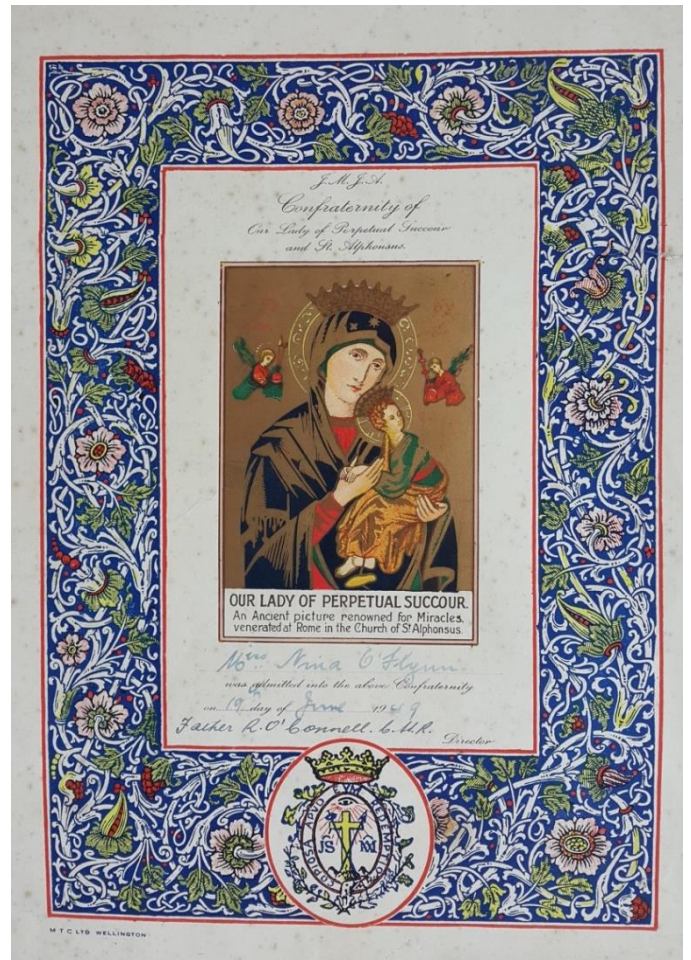 J.M.J.A.
Confraternity of
Our Lady of Perpetual Succour
and St. Alphonsus.
OUR LADY OF PERPETUAL SUCCOUR.
An Ancient picture renowned for Miracles,
venerated at Rome in the Church of St Alphonsus.
Nina O'Flynn
was admitted into the above Confraternity
on 19th day of June 1949
Father R. O'Connell. C.SS.R.
Director
COPIOSA APUD EUM REDEMPTIO
M T C LTD WELLINGTON